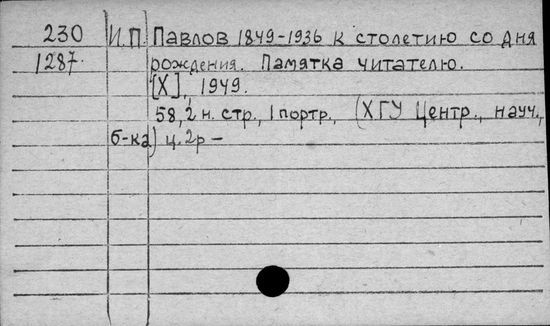 230 И.П. Павлов 1849-1936 к столетию со дня
1287. рождения. Памятка читателю.
[Х], 1949.
58, 2 н. стр., 1 портр., (ХГУ Центр., науч.,
б-ка) ц. 2р —